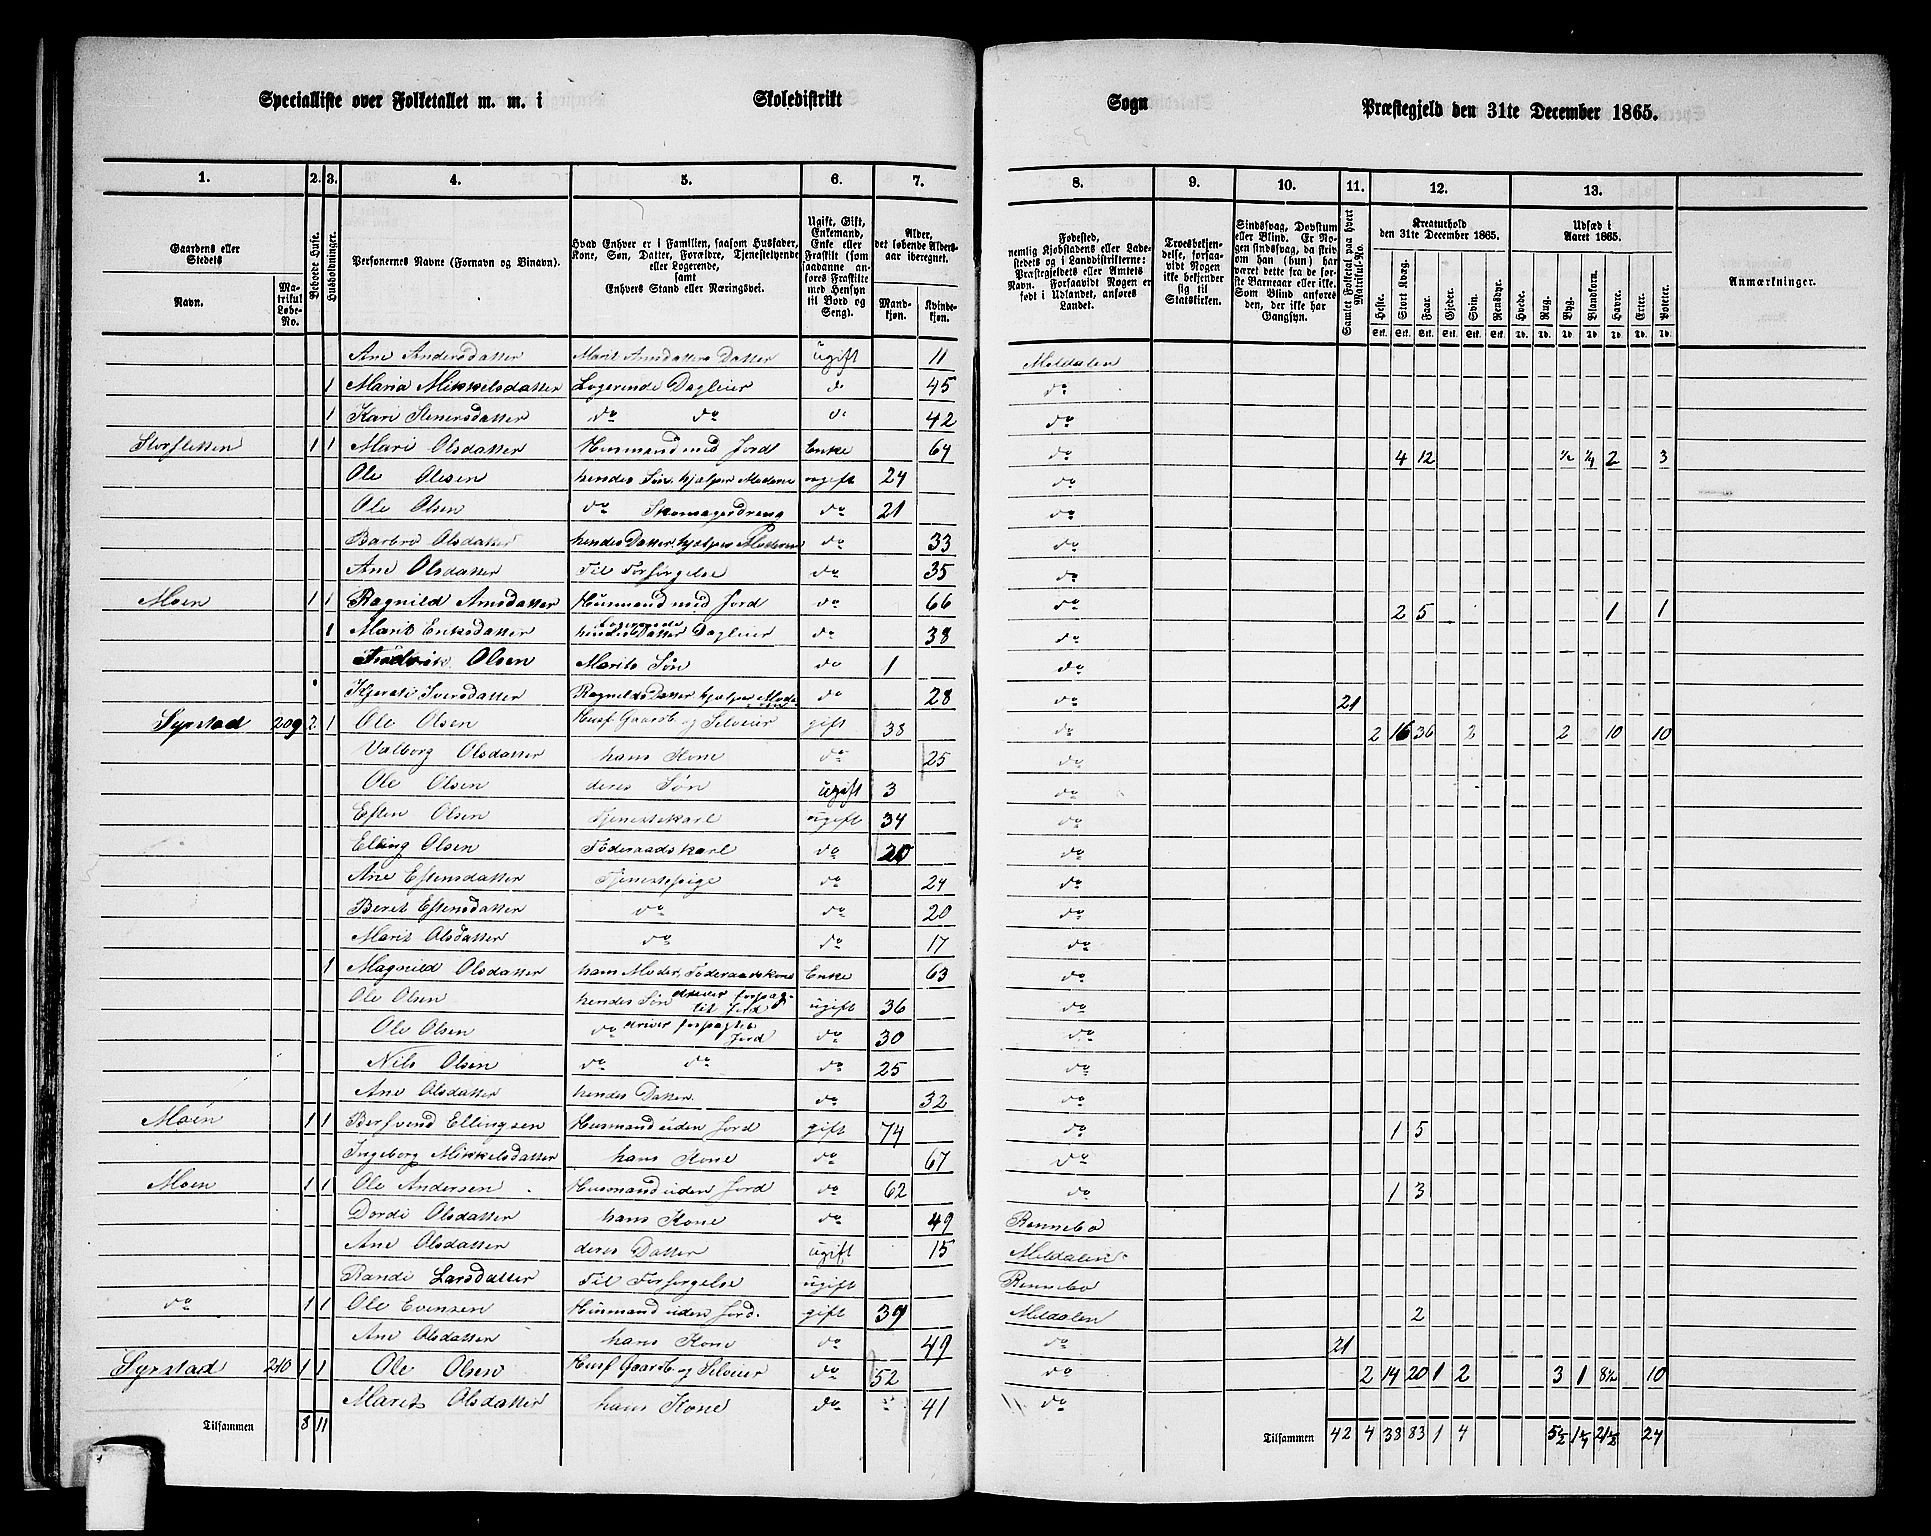 Specialliste over Folketallet m. m. i Skoledistrikt Sogn Præstegjeld den 31te December 1865.
1. 2. 3. 4. 5. 6. 7. 8. 9. 10. 11. 12. 13.
Gaardens eller Stedets Navn. Matrikul Løbe-No.
Beboede Huse.
Husholdninger.
Personernes Navne (Fornavn og Binavn).
Hvad Enhver er i Familien, saasom Husfader, Kone, Søn, Datter, Forældre, Tjenestetyende eller Logerende, samt Enhvers Stand eller Næringsvei.
Ugift, Gift, Enkemand, Enke eller Fraskilt (som saadanne anføres Fraskilte med Hensyn til Bord og Seng).
Alder, det løbende Aldersaar iberegnet. Mandkjøn. Kvindekjøn.
Fødested, nemlig Kjøbstadens eller Ladestedets og i Landdistrikterne: Præstegjeldets eller Amtets Navn. Forsaavidt Nogen er født i Udlandet, anføres Landet.
Troesbekjendelse, forsaavidt Nogen ikke bekjender sig til Statskirken.
Sindssvag, Døvstum eller Blind. Er Nogen sindssvag, da skrives om han (hun) har været dette fra de første Barneaar eller ikke. Som Blind anføres den, der ikke har Gangsyn.
Samlet Folketal paa hvert Matrikul-No.
Kreaturhold den 31te December 1865. Heste. Stort Kvæg. Faar. Gjeder. Svin. Rensdyr.
Udsæd i Aaret 1865. Hvede. Rug. Byg. Blandkorn. Havre. Erter. Poteter.
Anmærkninger.
Ane Andersdatter Marit Arnsdatters Datter ugift 11 Meldalen
1 Maria Mikkelsdatter Logerende Dagleier do 45 do
1 Kari Stenersdatter do do do 42 do
Storfletten 1 1 Mari Olsdatter Husmand med Jord Enke 64 do 4 12 ½ ¼ 2 3
Ole Olsen hendes Søn, hjælper Moderen ugift 24 do
Ole Olsen do Skomagerdreng do 21 do
Barbro Olsdatter hendes Datter, hjælper Moderen do 33 do
Ane Olsdatter Til Forsørgelse do 35 do
Moen 1 1 Ragnild Arnsdatter Husmand med Jord do 66 do 2 5 1 1
1 Marit Eriksdatter hendes Datter Logerende Dagleier do 38 do
Fredrik Olsen Marits Søn do 1 do
Kjersti Iversdatter Ragnilds Datter, hjælper Moderen do 28 do 21
Syrstad 209 2 1 Ole Olsen Husf. Gaardb. og Selveier gift 38 do 2 16 36 2 2 10 10
Valborg Olsdatter hans Kone do 25 do
Ole Olsen deres Søn ugift 3 do
Esten Olsen Tjenestekarl ugift 34 do
Elling Olsen Føderaadskarl do 20 do
Ane Estensdatter Tjenestepige do 24 do
Beret Estensdatter do do 20 do
Marit Olsdatter do do 17 do
1 Magnild Olsdatter hans Moder, Føderaadskone Enke 63 do
Ole Olsen hendes Søn driver forpagtet Jord ugift 36 do
Ole Olsen do driver forpagtet Jord do 30 do
Nils Olsen do do do 25 do
Ane Olsdatter hendes Datter do 32 do
Moen 1 1 Berfvend Ellingsen Husmand uden Jord gift 74 do 1 5
Ingeborg Mikkelsdatter hans Kone do 67 do
Moen 1 1 Ole Andersen Husmand uden Jord do 62 do 1 3
Dordi Olsdatter hans Kone do 49 Rennebo
Ane Olsdatter deres Datter ugift 15 Meldalen
Randi Larsdatter Til Forsørgelse ugift Rennebo
do 1 1 Ole Evensen Husmand uden Jord. gift 39 Meldalen 2
Ane Olsdatter hans Kone do 49 do 21
Syrstad 210 1 1 Ole Olsen Husf. Gaardb. og Selveier do 52 do 2 14 20 1 2 3 1 8½ 10
Marit Olsdatter hans Kone do 41 do
Tilsammen 8 11 Tilsammen 42 4 38 83 1 4 5½ 1¼ 21½ 24